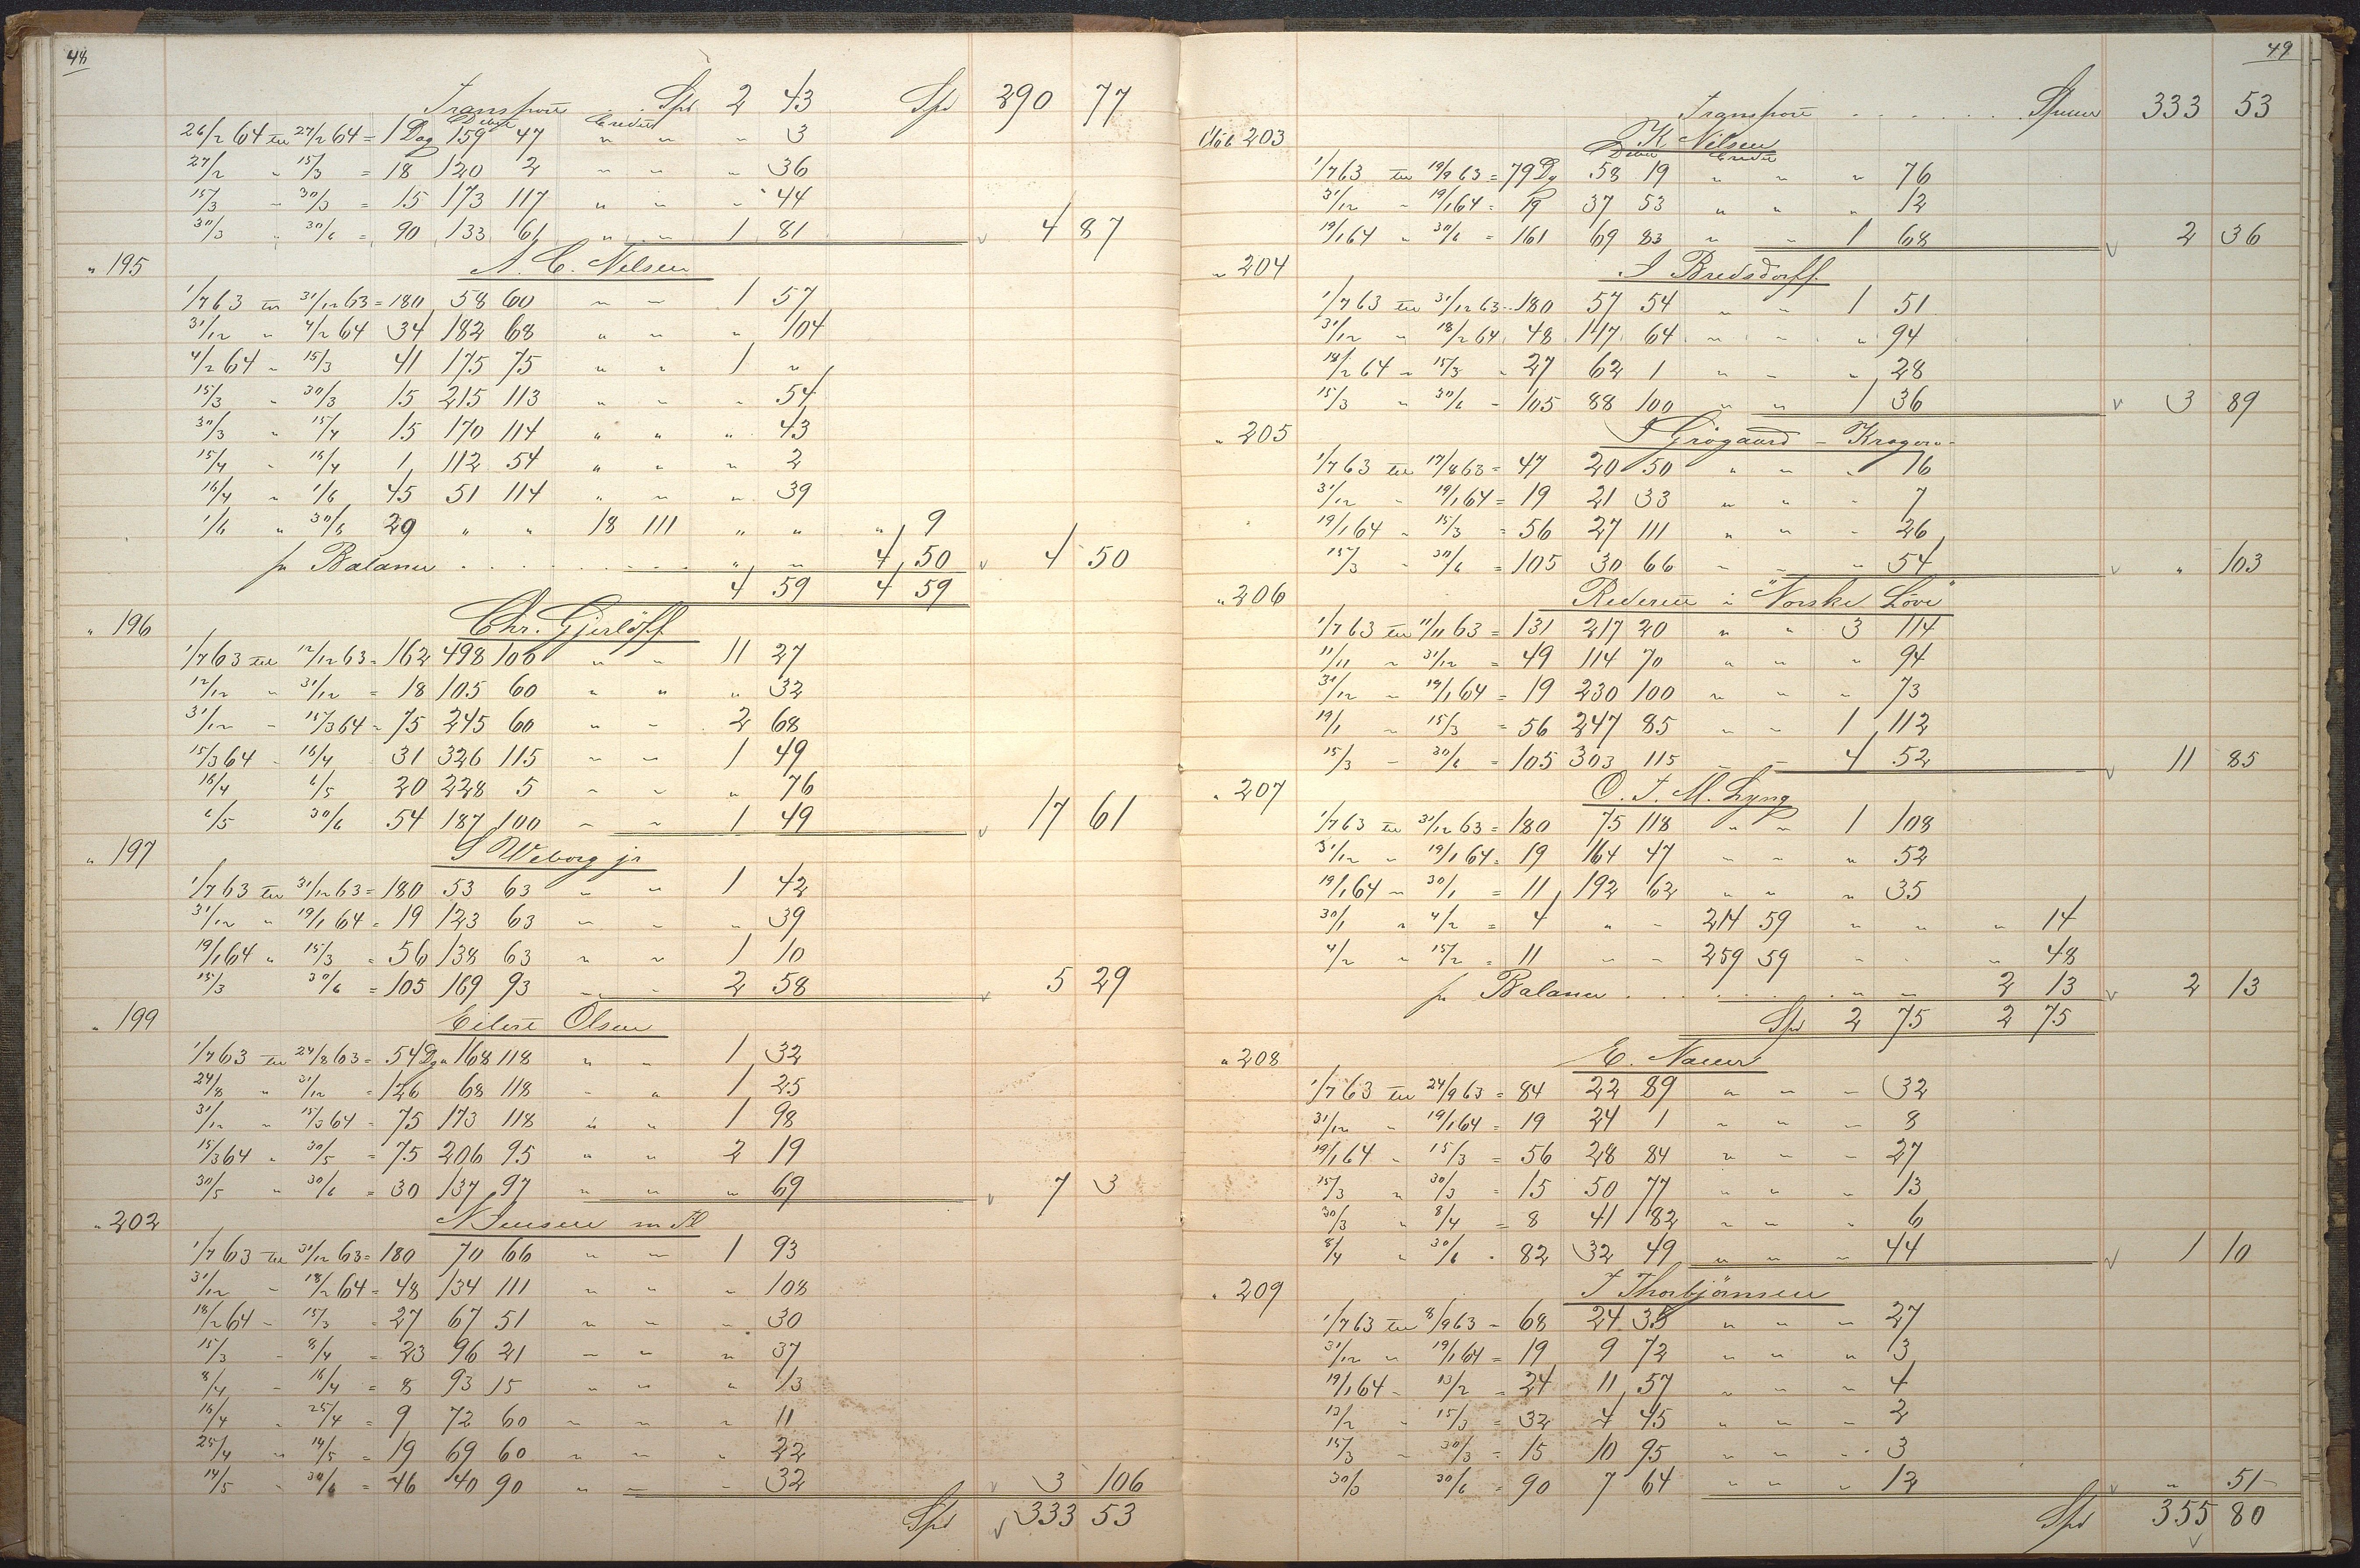 48
Transport . . Spd 2 43 Spd 290 77
Debet Credit
26/2 64 til 27/2 64 = 1 Dag 159 47 " " " 3
27/2 " 15/3 = 18 120 2 " " " 36
15/3 " 30/3 = 15 173 117 " " " 44
30/3 " 30/6 = 90 133 61 " " 1 81 4 87
" 195 A. C. Nilsen
1/7 63 til 31/12 63 = 180 58 60 " " 1 57
31/12 " 4/2 64 34 182 68 " " " 104
4/2 64 " 15/3 41 175 75 " " 1 "
15/3 " 30/3 15 215 113 " " " 54
30/3 " 15/4 15 170 114 " " " 43
15/4 " 16/4 1 112 54 " " " 2
16/4 " 1/6 45 51 114 " " " 39
1/6 " 30/6 29 " " 18 111 " " " 9
pr Balance . . . . . . . . . " " 4 50 4 50
4 59 4 59
" 196 Chr. Gjerløff
1/7 63 til 12/12 63 = 162 498 106 " " 11 27
12/12 " 31/12 = 18 105 60 " " " 32
31/12 " 15/3 64 = 75 245 60 " " 2 68
15/3 64 " 16/4 31 326 115 " " 1 49
16/4 6/5 20 228 5 " " " 76
6/5 30/6 54 187 100 " " 1 49 17 61
" 197 S Weborg jr
1/7 63 til 31/12 63 = 180 53 63 " " 1 42
31/12 " 19/1 64 = 19 123 63 " " " 39
19/1 64 " 15/3 = 56 138 63 " " 1 10
15/3 30/6 = 105 169 93 " " 2 58 5 29
" 199 Eilert Olsen
1/7 63 til 24/8 63 = 54 Dge 168 118 " " 1 32
24/8 " 31/12 = 126 68 118 " " 1 25
31/12 " 15/3 64 = 75 173 118 " " 1 98
15/3 64 " 30/5 = 75 206 95 " " 2 19
30/5 " 30/6 = 30 137 97 " " " 69 7 3
" 202 N Jensen
1/7 63 til 31/12 63 = 180 70 66 " " 1 93
31/12 " 18/2 64 = 48 134 111 " " " 108
18/2 64 " 15/3 = 27 67 51 " " " 30
15/3 " 8/4 = 23 96 21 " " " 37
8/4 " 16/4 = 8 93 15 " " " 13
16/4 " 25/4 = 9 72 60 " " " 11
25/4 " 14/5 = 19 69 60 " " " 22
14/5 " 30/6 = 46 40 90 " " " 32 3 106
Spd 333 53
49
Transport . . . . . . 333 53
203 K Nilsen
Debet Credit
1/7 63 til 19/9 63 = 79 Dg 58 19 " " " 76
31/12 " 19/1 64 = 19 37 53 " " " 12
19/1 64 " 30/6 = 161 69 83 " " 1 68 2 36
" 204 J Bredsdorff
1/7 63 til 31/12 63 = 180 57 54 " " 1 51
31/12 " 18/2 64 48 117 64 " " " 94
18/2 64 " 15/3 " 27 62 1 " " " 28
15/3 " 30/6 = 105 88 100 " " 1 36 3 89
" 205 J Grøgaard - Kragerø -
1/7 63 til 17/8 63 = 47 20 50 " " " 16
31/12 " 19/1 64 = 19 21 33 " " " 7
19/1 64 " 15/3 = 56 27 111 " " " 26
15/3 " 30/6 = 105 30 66 " " " 54 " 103
" 206 Rederiet i "Norske Løve"
1/7 63 til 11/11 63 = 131 217 20 " " 3 114
11/11 " 31/12 = 49 114 70 " " " 94
31/12 " 19/1 64 = 19 230 100 " " " 73
19/1 " 15/3 = 56 247 85 " " 1 112
15/3 " 30/6 = 105 303 115 " " 4 52 11 85
" 207 O. J. M. Lyng
1/7 63 til 31/12 63 = 180 75 118 " " 1 108
31/12 " 19/1 64 = 19 164 47 " " " 52
19/1 64 " 30/1 = 11 192 62 " " " 35
30/1 " 4/2 = 4 " " 214 59 " " " 14
4/2 " 15/2 = 11 " " 259 59 " " " 48
pr Balance . . . . . . . " " 2 13 2 13
Spd 2 75 2 75
" 208 E. Nauer
1/7 63 til 24/9 63 = 84 22 89 " " " 32
31/12 " 19/1 64 = 19 24 1 " " " 8
19/1 64 " 15/3 = 56 28 84 " " " 27
15/3 " 30/3 = 15 50 77 " " " 13
30/3 " 8/4 = 8 41 82 " " " 6
8/4 " 30/6 = 82 32 49 " " " 44 1 10
" 209 J Thorbjörnsen
1/7 63 til 8/9 63 = 68 24 35 " " " 27
31/12 " 19/1 64 = 19 9 72 " " " 3
19/1 64 " 13/2 = 24 11 57 " " " 4
13/2 " 15/3 = 32 4 45 " " " 2
15/3 " 30/3 = 15 10 95 " " " 3
30/3 30/6 = 90 7 64 " " " 12 " 51
Spd 355 80